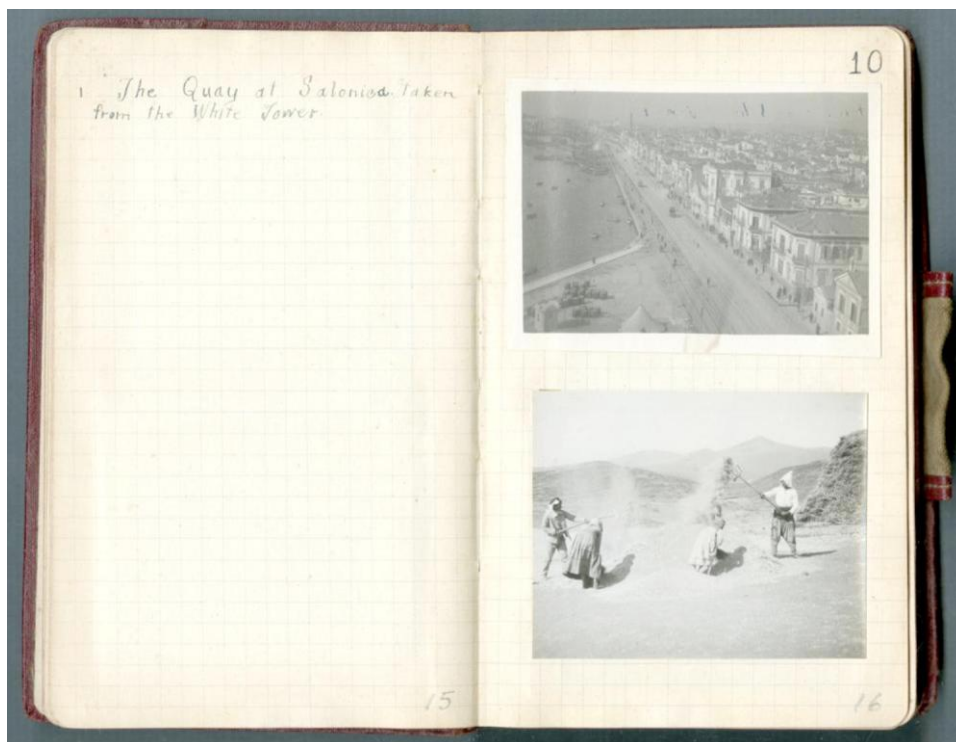 1 The Quay at Salonica taken
from the White Tower.
15
10
16